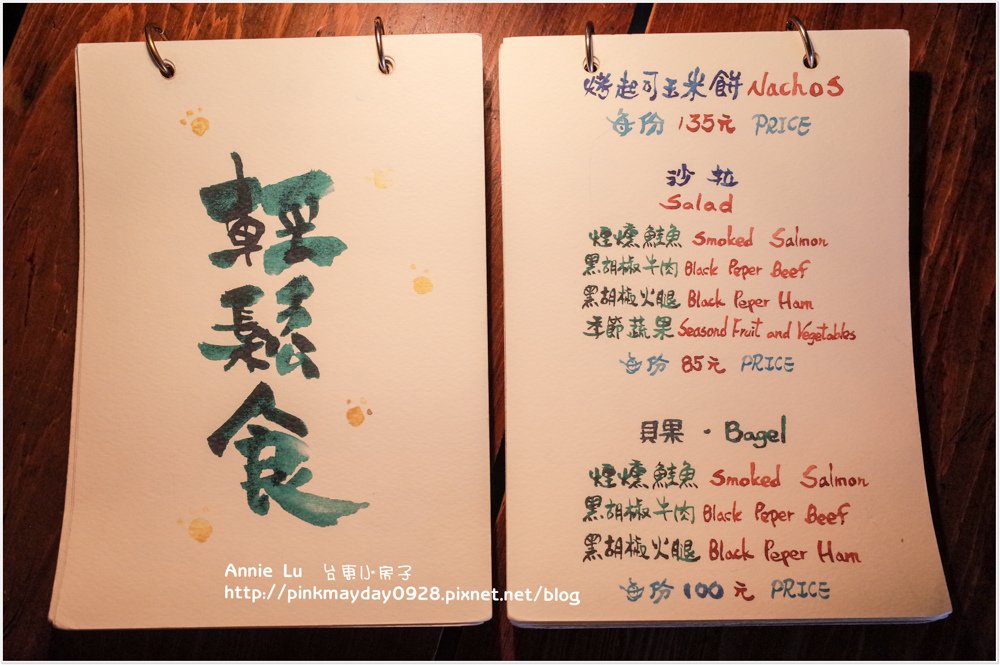 輕鬆食
Annie Lu 台東小房子
http://pinkmayday0928.pixnet.net/blog
烤起司玉米餅 Nachos
每份 135元 PRICE
沙拉
Salad
煙燻鮭魚 Smoked Salmon
黑胡椒牛肉 Black Peper Beef
黑胡椒火腿 Black Peper Ham
季節蔬果 Seasond Fruit and Vegetables
每份 85元 PRICE
貝果・Bagel
煙燻鮭魚 Smoked Salmon
黑胡椒牛肉 Black Peper Beef
黑胡椒火腿 Black Peper Ham
每份 100元 PRICE